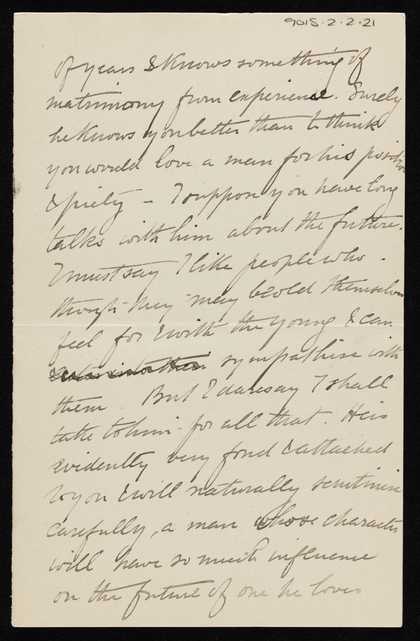 9015-2-2-21
of years & knows something of
matrimony from experience. Surely
he knows you better than to think
you would love a man for his position
& piety – I suppose you have long
talks with him about the future.
I must say I like people who –
though they may be old themselves
feel for & with the young & can
sympathise with
them. But I daresay I shall
take to him for all that. He is
evidently very fond & attached
to you & will naturally scrutinise
carefully, a man whose character
will have so much influence
on the future of one he loves